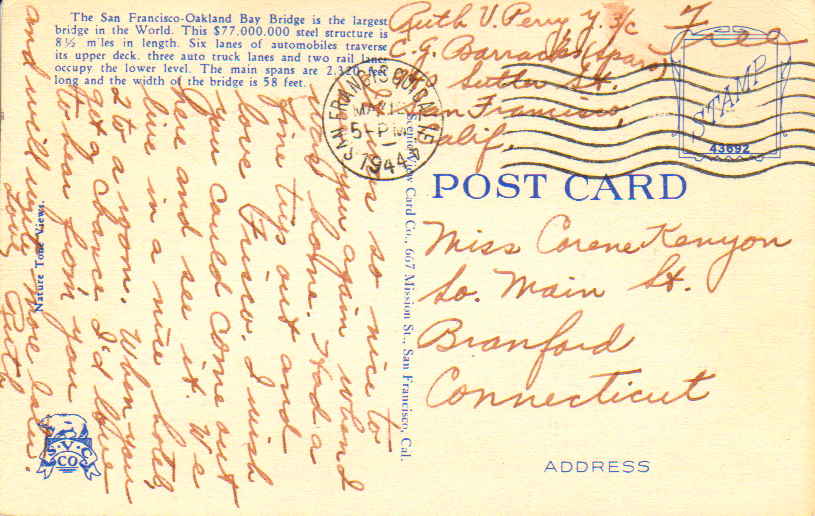 The San Francisco-Oakland Bay Bridge is the largest
bridge in the World. This $77.000.000 steel structure is
8½ miles in length. Six lanes of automobiles traverse
its upper deck. three auto truck lanes and two rail lanes
occupy the lower level. The main spans are 2.320 feet
long and the width of the bridge is 58 feet.
Ruth V. Perry Y. 3/c
C.G. Barracks (spars)
Sutter St.
San Francisco,
Calif.
Free
STAMP
43692
SAN FRANCISCO CALIF
MAY 12
5-PM
1944
POST CARD
Miss Corene Kenyon
So. Main St.
Branford
Connecticut
ADDRESS
Scenic View Card Co., 667 Mission St., San Francisco, Cal.
was so nice to
you again when I
was home. Had a
fine trip out and
love Frisco. I wish
you could come out
here and see it. We
live in a nice hotel,
2 to a room. When you
get a chance I'd love
to hear from you
and will write more later.
Love,
Ruth
Nature Tone Views.
S.V.C.
CO